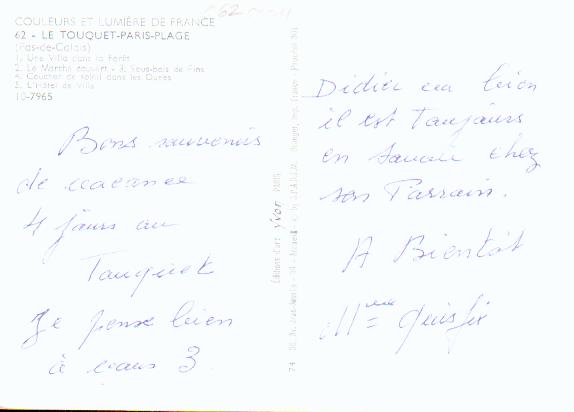 COULEURS ET LUMIÈRE DE FRANCE
62 - LE TOUQUET-PARIS-PLAGE
(Pas-de-Calais)
1. Une Villa dans la Forêt
2. Le Marché couvert - 3. Sous-bois de Pins
4. Coucher de soleil dans les Dunes
5. L'Hôtel de Ville
10-7965
Bons souvenirs
de vacances
4 jours au
Touquet
Je pense bien
à vous 3
Éditions d'art YVON
Didier va bien
il est Toujours
en Savoie chez
son Parrain.
A Bientôt
Mme